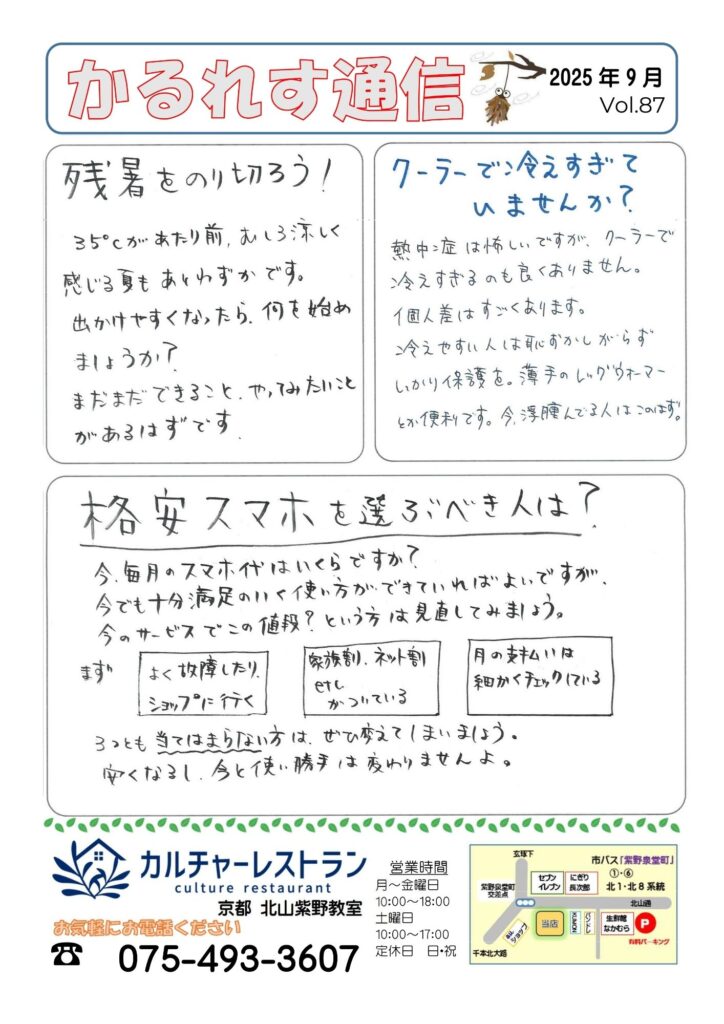 かるれす通信
2025年9月
Vol.87
残暑をのり切ろう！
35℃があたり前、むしろ涼しく
感じる夏もあとわずかです。
出かけやすくなったら、何を始め
ましょうか？
まだまだできること、やってみたいこと
があるはずです。
クーラーで冷えすぎて
いませんか？
熱中症は怖しいですが、クーラーで
冷えすぎるのも良くありません。
個人差はすごくあります。
冷えやすい人は恥ずかしがらず
しっかり保護を。薄手のレッグウォーマー
とか便利です。今、浮腫んでる人はこのはず。
格安スマホを選ぶべき人は？
今、毎月のスマホ代はいくらですか？
今でも十分満足のいく使い方ができていればよいですが、
今のサービスでこの値段？という方は見直してみましょう。
まず
よく故障したり、
ショップに行く
家族割、ネット割
etc
がついている
月の支払いは
細かくチェックしている
3つとも当てはまらない方は、ぜひ変えてしまいましょう。
安くなるし、今と使い勝手は変わりませんよ。
カルチャーレストラン
culture restaurant
京都 北山紫野教室
お気軽にお電話ください
075-493-3607
営業時間
月～金曜日
10:00～18:00
土曜日
10:00～17:00
定休日 日・祝
玄塚下
市バス「紫野泉堂町」
①・⑥
北1・北8系統
紫野泉堂町
交差点
セブン
イレブン
にぎり
長次郎
北山通
当店
KUMON
生鮮館
なかむら
P
有料パーキング
千本北大路